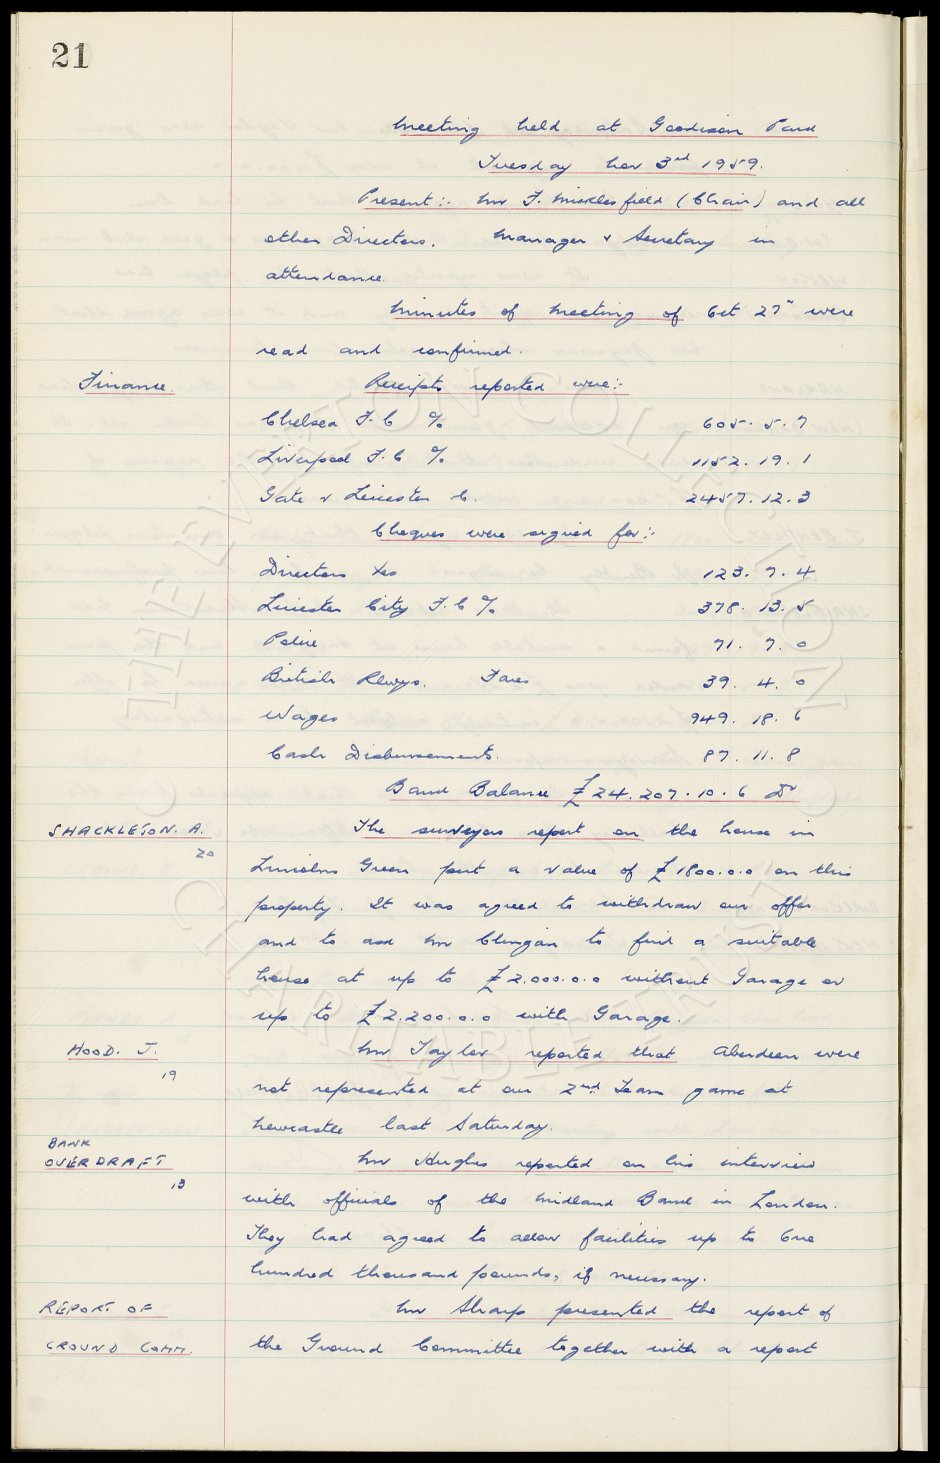 21
Meeting held at Goodison Park
Tuesday Nov 3rd 1959.
Present:- Mr F. Micklesfield (Chair) and all
other Directors. Manager & Secretary in
attendance.
Minutes of Meeting of Oct 27" were
read and confirmed.
Finance. Receipts reported were:-
Chelsea F.C % 605. 5. 7
Liverpool F.C % 1152. 19. 1
Gate v Leicester C. 2457. 12. 3
Cheques were signed for:-
Directors Xes 123. 7. 4
Leicester City F.C % 378. 13. 5
Police 71. 7. 0
British Rlwys. Fares 39. 4. 0
Wages 949. 18. 6
Cash Disbursements. 87. 11. 8
Bank Balance £24.207.10.6 Dr
SHACKLETON. A. The surveyors report on the house in
20
Lincolns Green put a value of £1800.0.0 on this
property. It was agreed to withdraw our offer
and to ask Mr Clingan to find a suitable
house at up to £2.000.0.0 without Garage or
up to £2.200.0.0 with Garage.
HOOD. J. Mr Taylor reported that Aberdeen were
19
not represented at our 2nd Team game at
Newcastle last Saturday.
BANK
OVERDRAFT Mr Hughes reported on his interview
13
with officials of the Midland Bank in London.
They had agreed to allow facilities up to One
hundred thousand pounds, if necessary.
REPORT OF Mr Sharp presented the report of
GROUND COMM. the Ground Committee together with a report
THE EVERTON COLLECTION
CHARITABLE TRUST